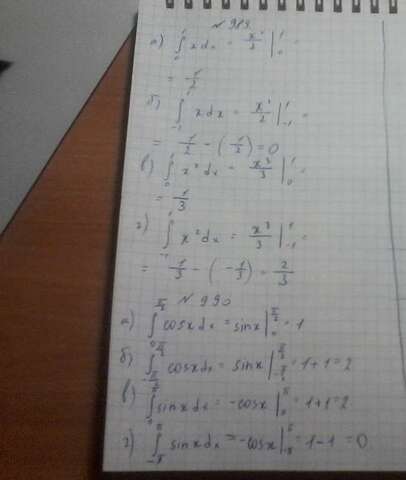 № 989.
а) ∫₀¹ x dx = x²/2 |₀¹ =
= 1/2
б) ∫₋₁¹ x dx = x²/2 |₋₁¹ =
= 1/2 - (1/2) = 0
в) ∫₀¹ x² dx = x³/3 |₀¹ =
= 1/3
г) ∫₋₁¹ x² dx = x³/3 |₋₁¹ =
= 1/3 - (-1/3) = 2/3
№ 990
а) ∫₀^(π/2) cosx dx = sinx |₀^(π/2) = 1
б) ∫_(-π/2)^(π/2) cosx dx = sinx |_(-π/2)^(π/2) = 1+1=2
в) ∫₀^π sinx dx = -cosx |₀^π = 1+1=2
г) ∫_(-π)^π sinx dx = -cosx |_(-π)^π = 1-1 = 0